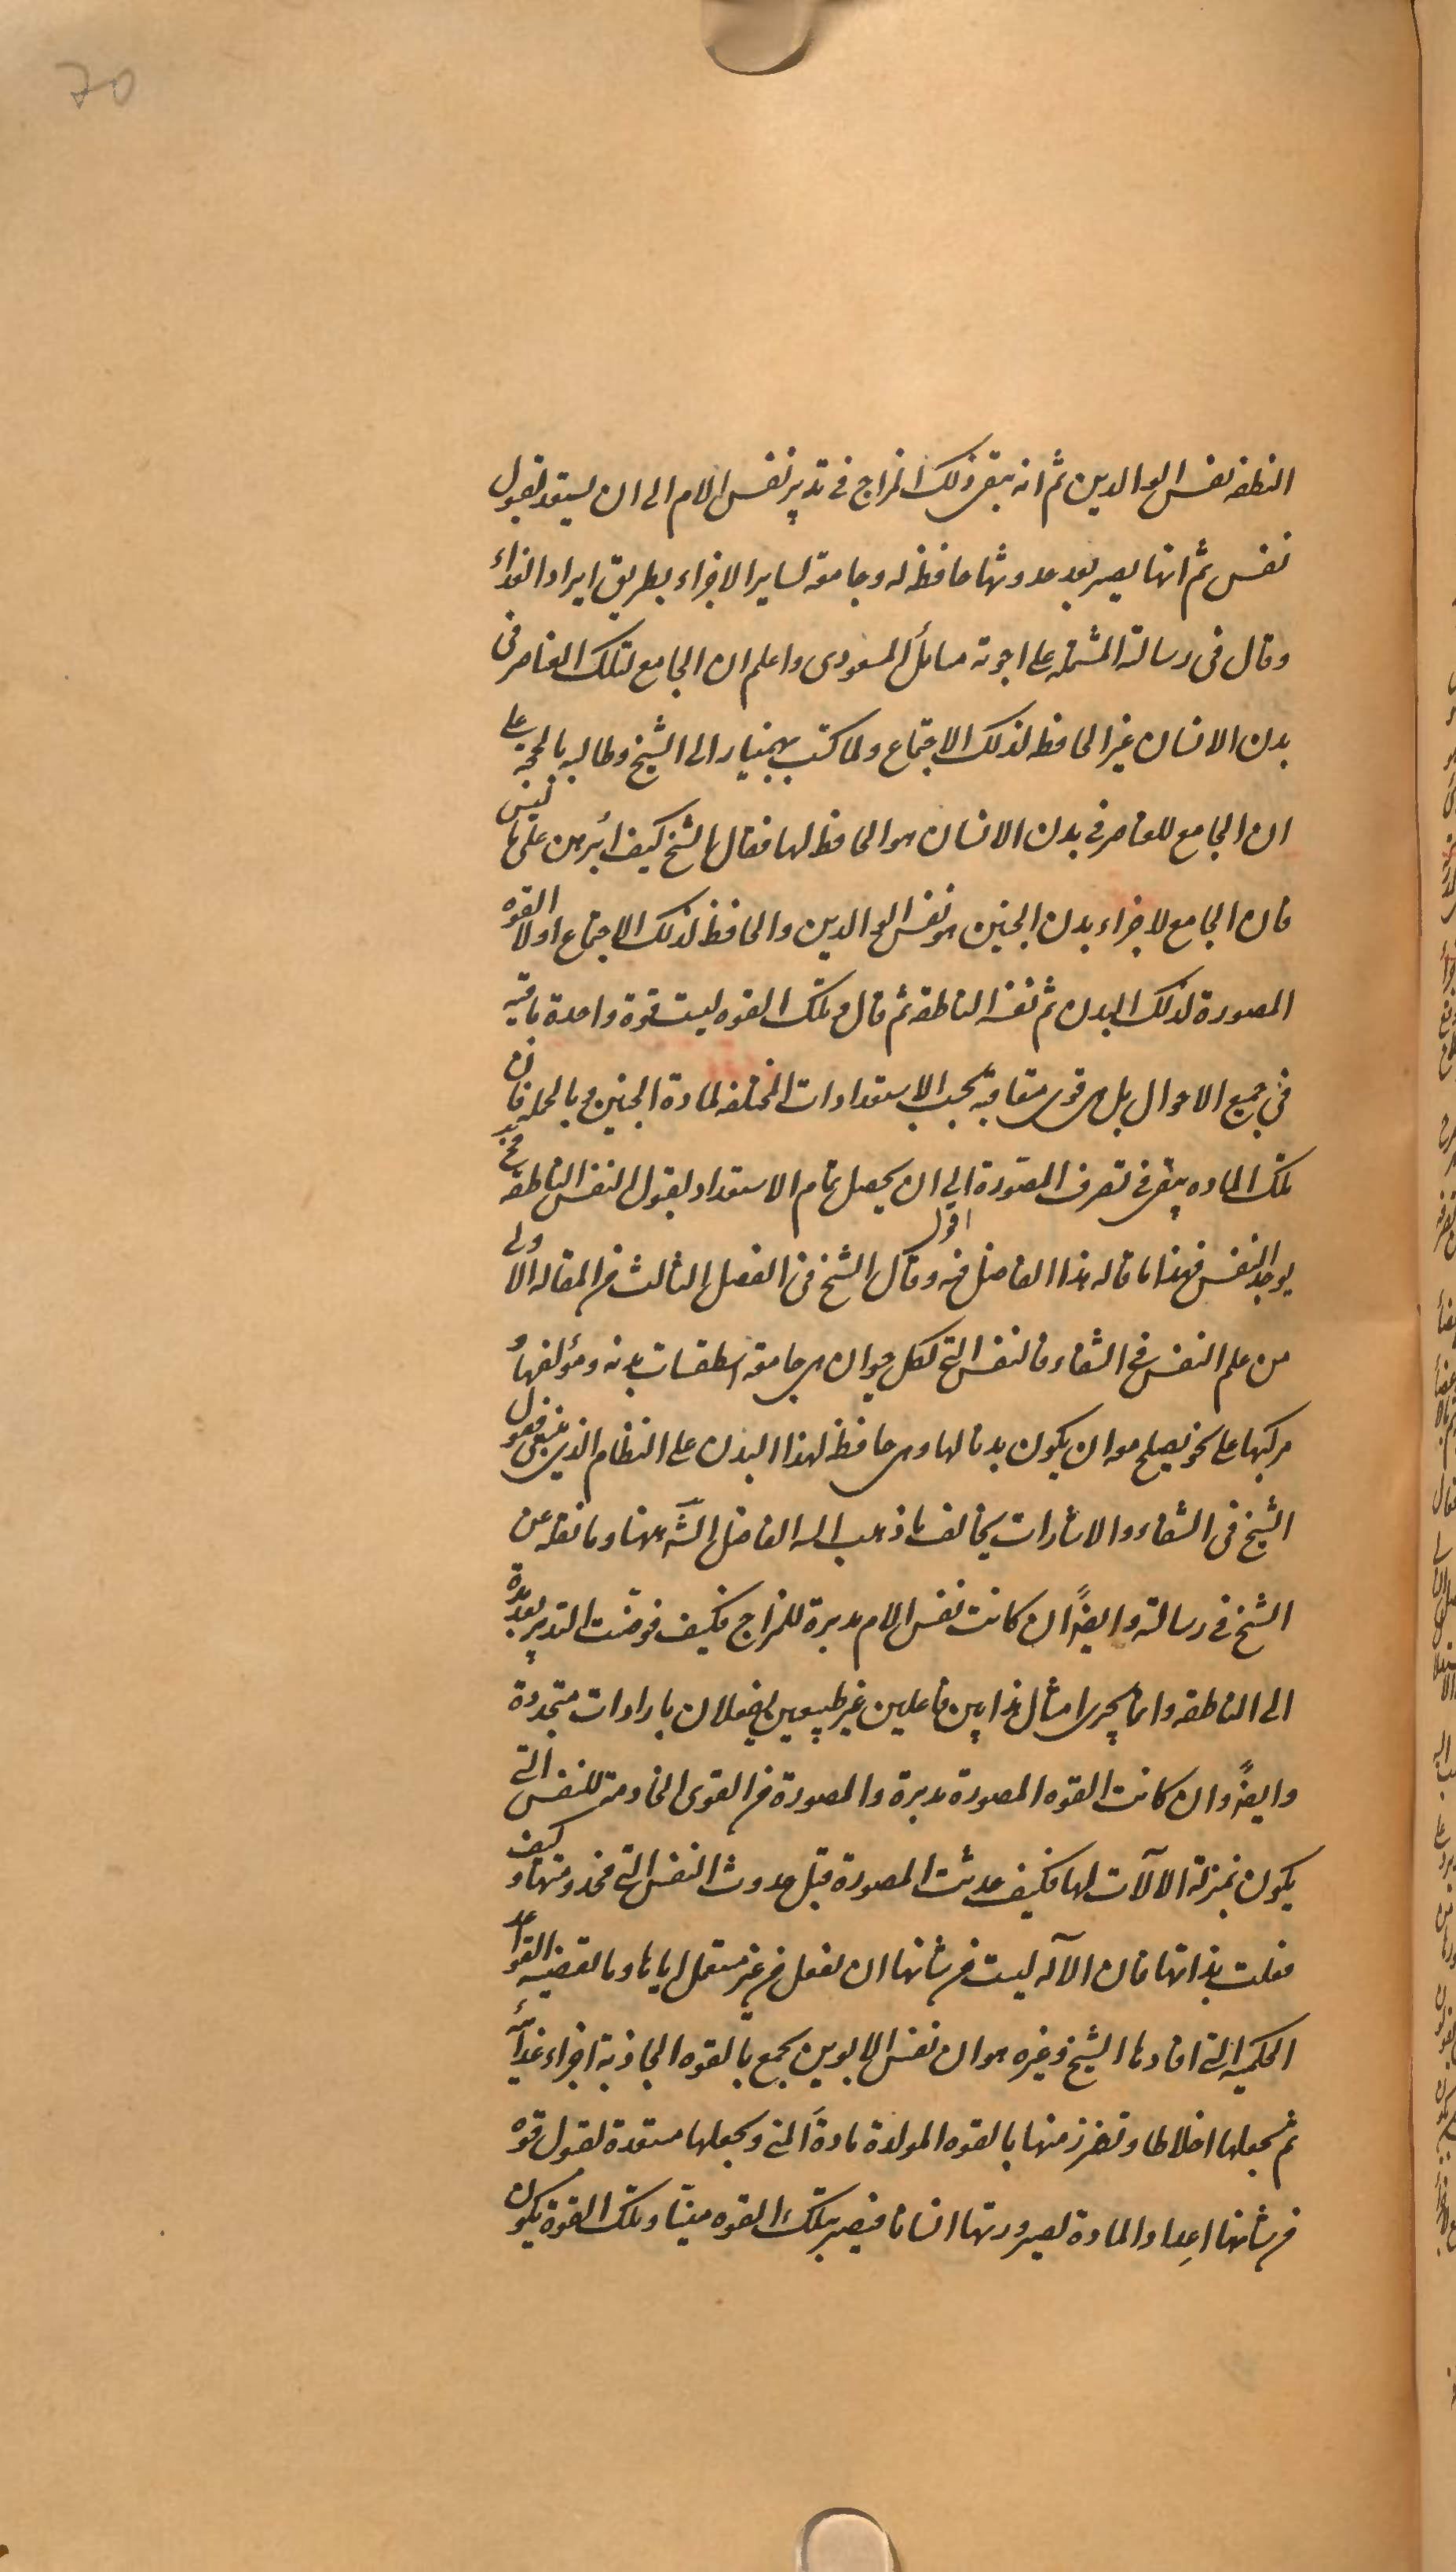 70
النطفه نفس الوالدين ثم انه يبقى ذلك المزاج فى تدبير نفس الام الى ان يستعد لقبول
نفس ثم انها يصير بعد حدوثها حافظه له وجامعة لساير الاجزاء بطريق ايراد الغذاء
وقال فى رسالته المشتمله على اجوبة مسائل المسعودى واعلم ان الجامع لتلك العناصر فى
بدن الانسان غير الحافظ لذلك الاجتماع ولما كتب بهمنيار الى الشيخ وطالبه بالحجه على
ان الجامع للعناصر فى بدن الانسان هو الحافظ لها فقال الشيخ كيف أبرهن على ما ليس
فان الجامع لاجزاء بدن الجنين هو نفس الوالدين والحافظ لذلك الاجتماع اولا القوه
المصورة لذلك البدن ثم نفسه الناطقة ثم قال وتلك القوه ليست قوة واحدة باقيه
فى جميع الاحوال بل هى قوى متعاقبة بحسب الاستعدادات المختلفه لمادة الجنين وبالجمله فان
تلك الماده يبقى فى تصرف المصوّرة الى ان يحصل تمام الاستعداد لقبول النفس الناطقه فحينئذ
يوجد النفس فهذا ما قاله هذا الفاضل فيه اقول وقال الشيخ فى الفصل الثالث من المقاله الاولى
من علم النفس فى الشفاء فالنفس التى لكل حيوان هى جامعة اسطقسات بدنه ومؤلفها و
مركبها على نحو يصلح معه ان يكون بدنا لها وهى حافظة لهذا البدن على النظام الذى ينبغى فقول
الشيخ فى الشفاء والاشارات يخالف ما ذهب اليه الفاضل الشه ههنا وما نقله عن
الشيخ فى رسالته وايضاً ان كانت نفس الام مدبرة للمزاج فكيف فوضت التدبير بعد مدة
الى الناطقه وانما يجرى امثال هذا بين فاعلين غير طبيعيين يفعلان بارادات متجددة
وايضاً وان كانت القوه المصورة مدبرة والمصورة من القوى الخادمة للنفس التى
يكون بمنزلة الآلات لها فكيف حدثت المصورة قبل حدوث النفس التى مخدومتها و كيف
فعلت بذاتها فان الآله ليست من شانها ان تفعل من غير مستعمل اياها وما تقتضيه القواعد
الحكميه التى افادها الشيخ وغيره هو ان نفس الابوين يجمع بالقوه الجاذبة اجزاء غذائية
ثم يجعلها اخلاطا وتفرز منها بالقوه المولدة مادة المنى ويجعلها مستعدة لقبول قوة
من شانها اعداد المادة لصيرورتها انسانا فيصير بتلك القوه منيّا وتلك القوة يكون